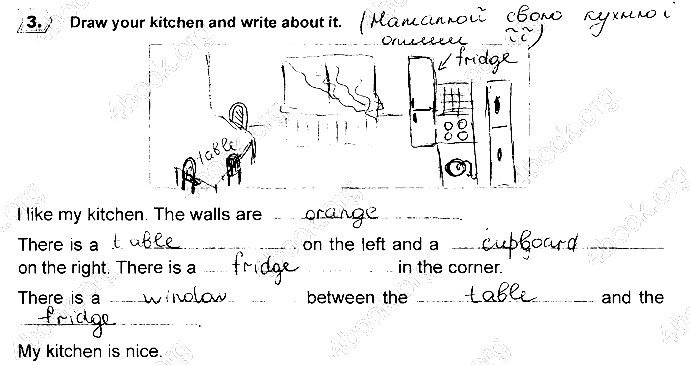 3. Draw your kitchen and write about it. (Намалюй свою кухню і
опиши її)
fridge
table
I like my kitchen. The walls are orange
There is a table on the left and a cupboard
on the right. There is a fridge in the corner.
There is a window between the table and the
fridge
My kitchen is nice.
4book.org